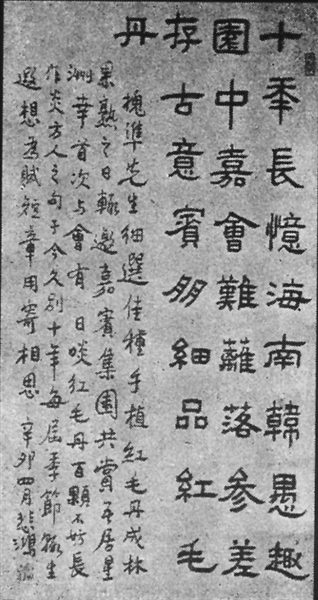 十秊長憶海南韓愚趣
園中嘉會難蘺落參差
存古意賓朋細品紅毛
丹
槐準先生細選佳種手植紅毛丹成林
果熟之日輒邀嘉賓集園共賞吾居星
洲幸首次与會有日啖紅毛丹百顆不妨長
作炎方人之句于今久別十年每屆季節輒生
遐想為賦短章用寄相思 辛卯四月悲鴻